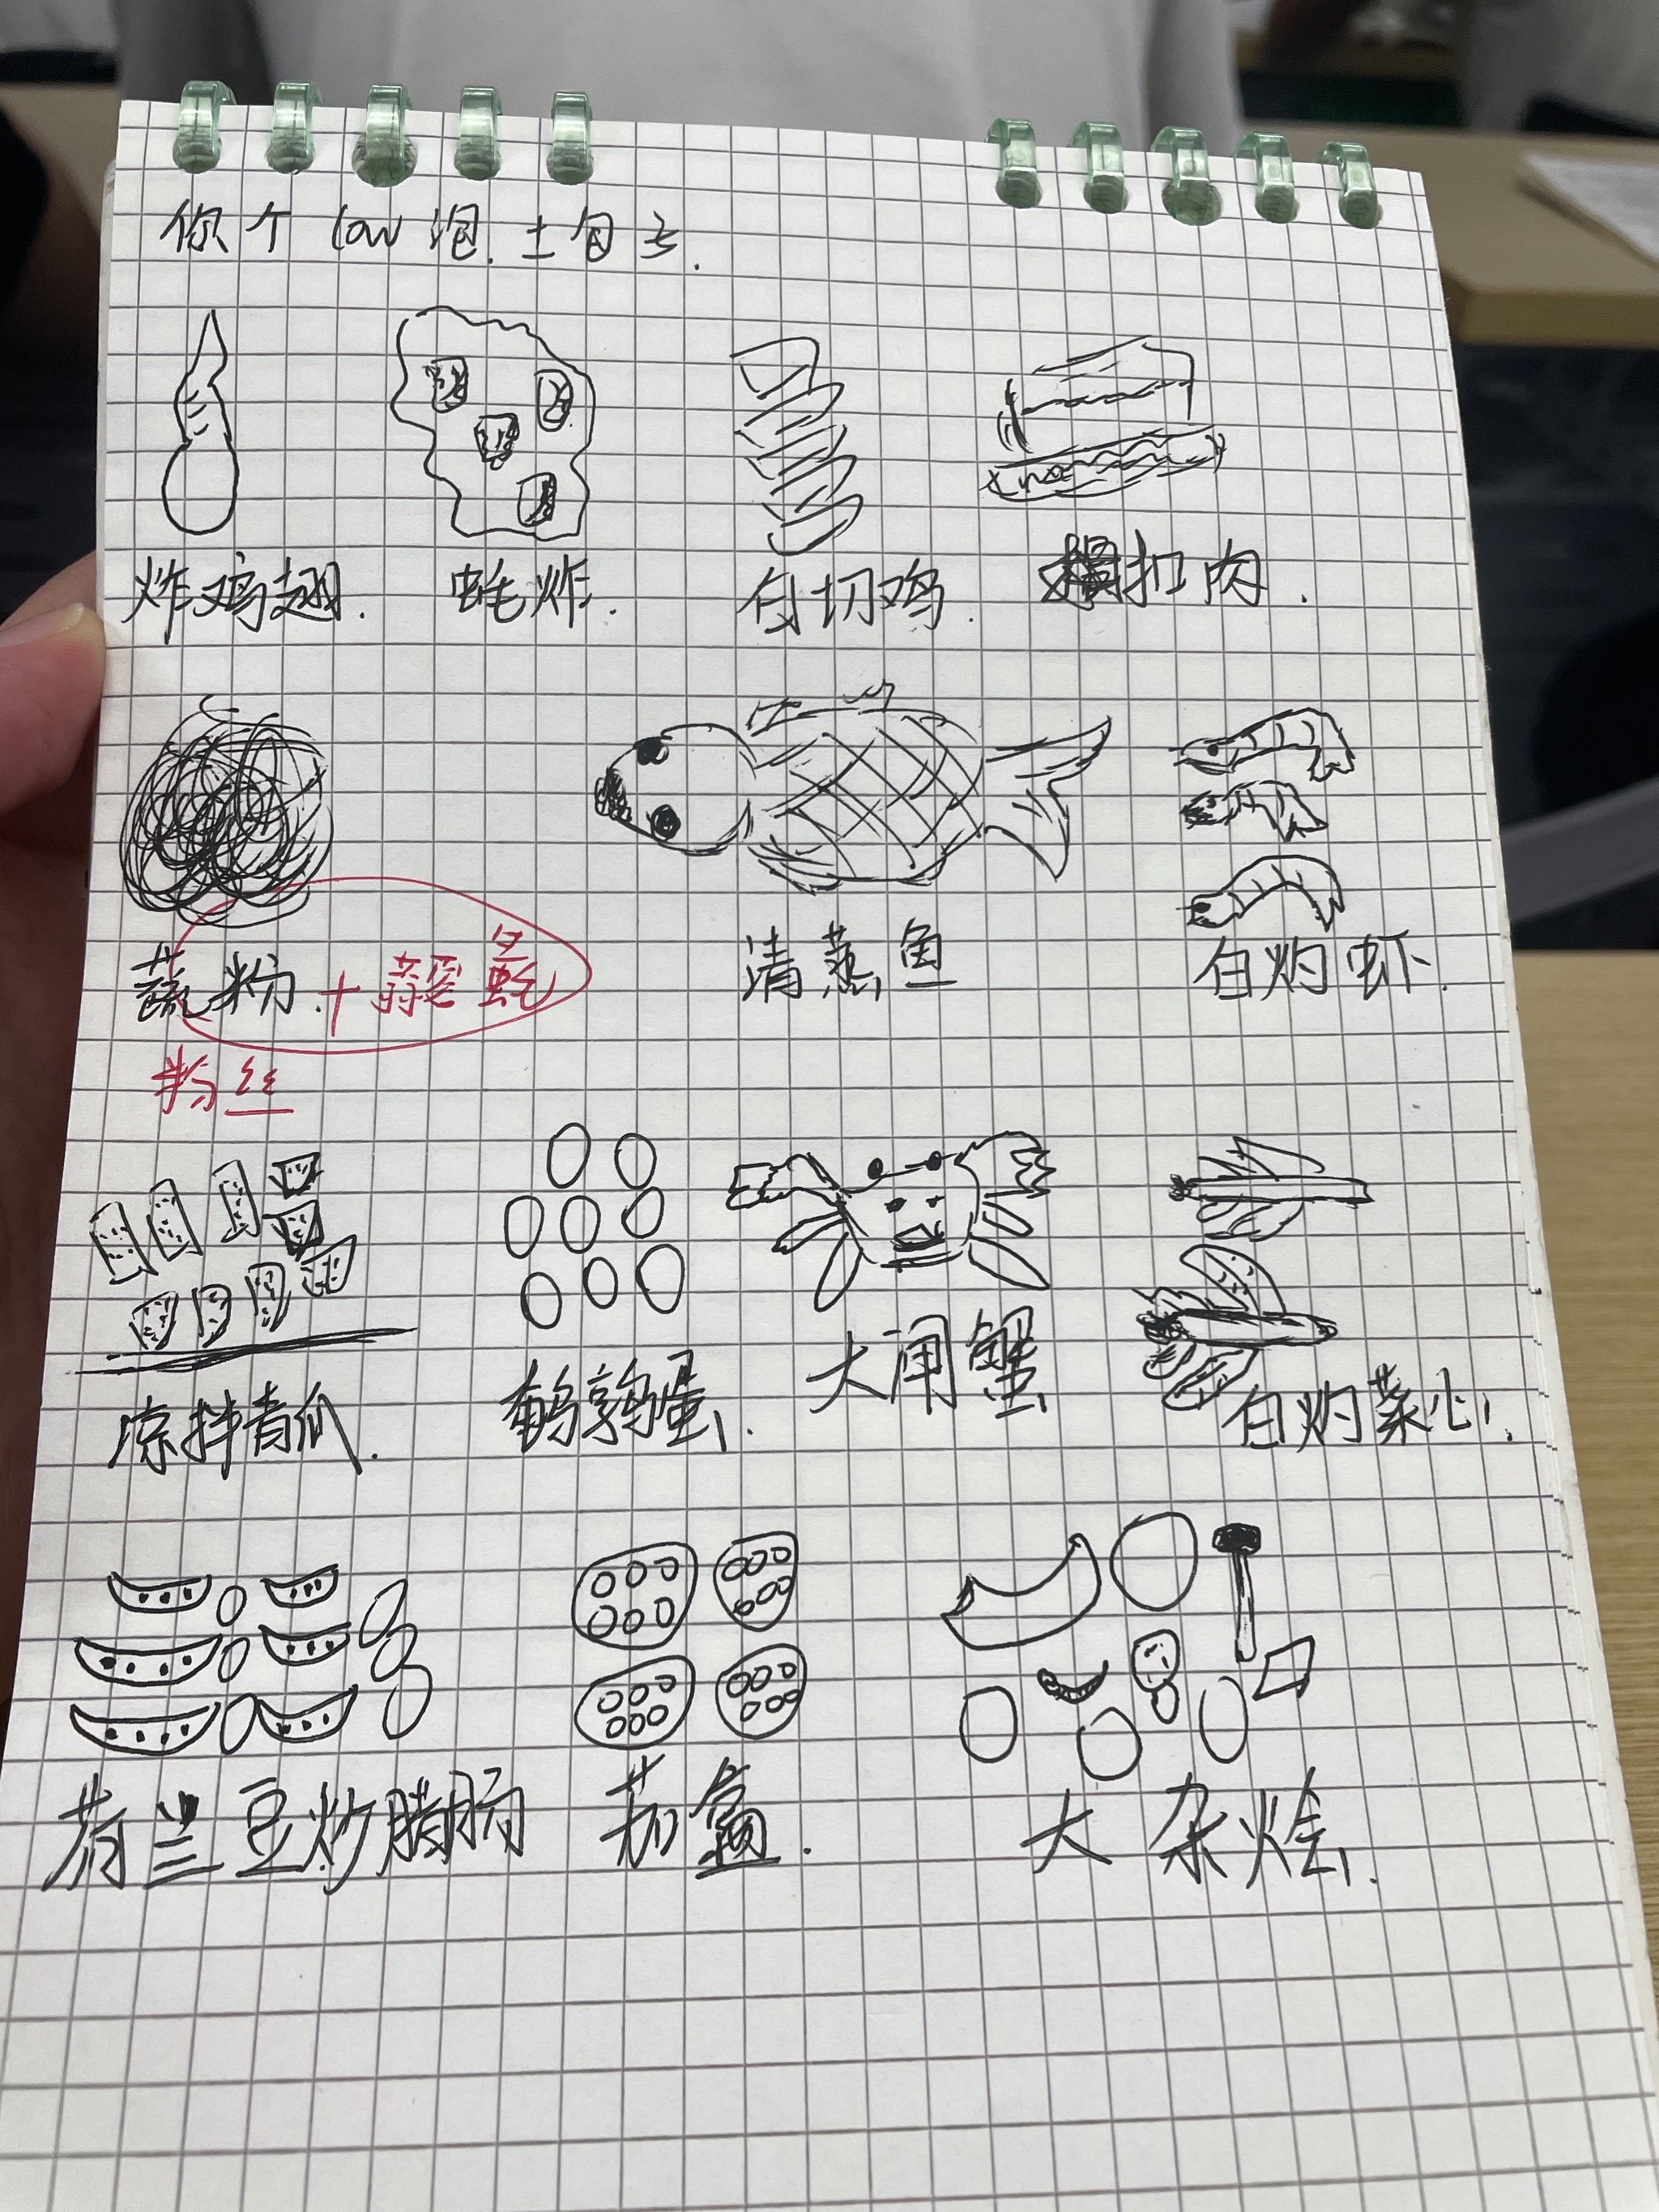 你个low泡.土包子.
炸鸡翅. 蚝炸. 白切鸡. 扣肉.
粉.+蒜蓉 清蒸鱼 白灼虾.
粉丝
凉拌青瓜. 鹌鹑蛋. 大闸蟹 白灼菜心.
荷兰豆炒腊肠 茄盒. 大杂烩.